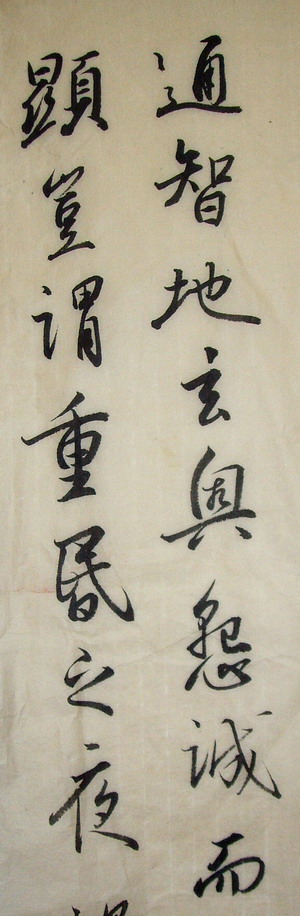 通智地玄奧懇誠而
顯豈謂重昏之夜